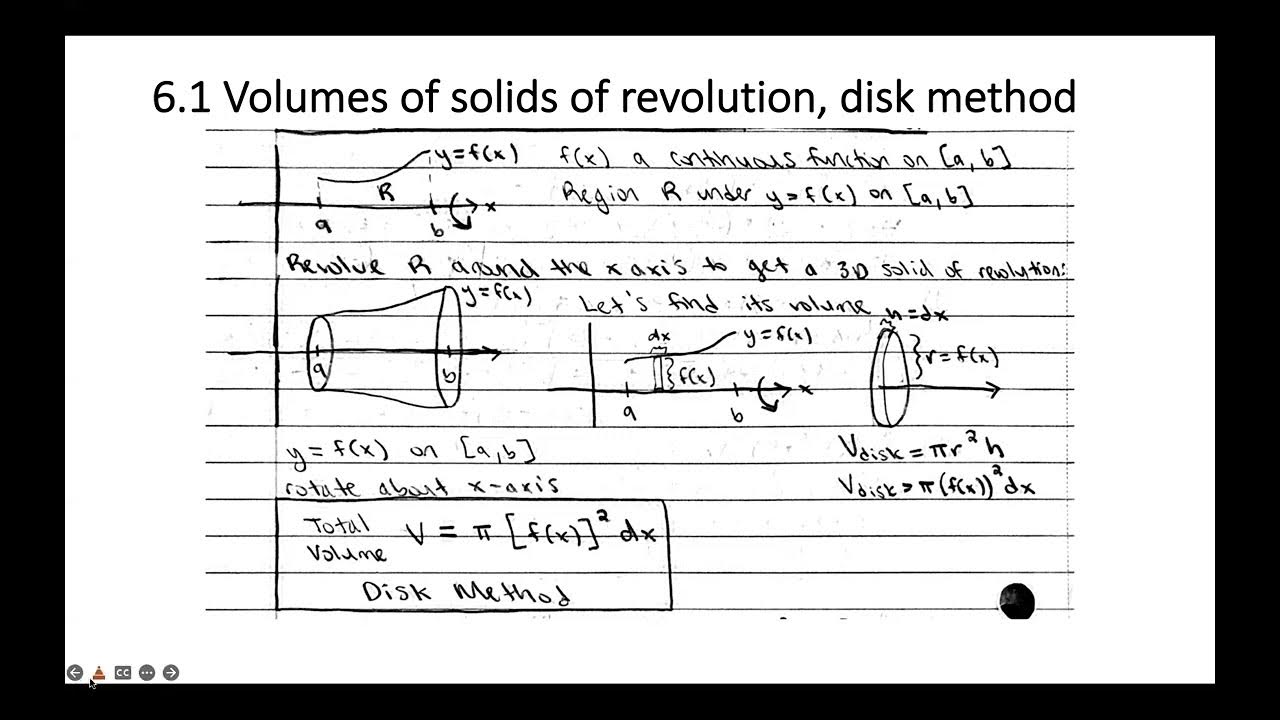 6.1 Volumes of solids of revolution, disk method
y=f(x) f(x) a continuous function on [a, b]
R Region R under y=f(x) on [a, b]
a b x
Revolve R around the x axis to get a 3D solid of revolution:
y=f(x) Let's find its volume h=dx
dx y=f(x)
a b f(x) x r=f(x)
a b
y=f(x) on [a,b] Vdisk = πr²h
rotate about x-axis Vdisk = π(f(x))²dx
Total Volume V = π [f(x)]² dx
Disk Method
CC